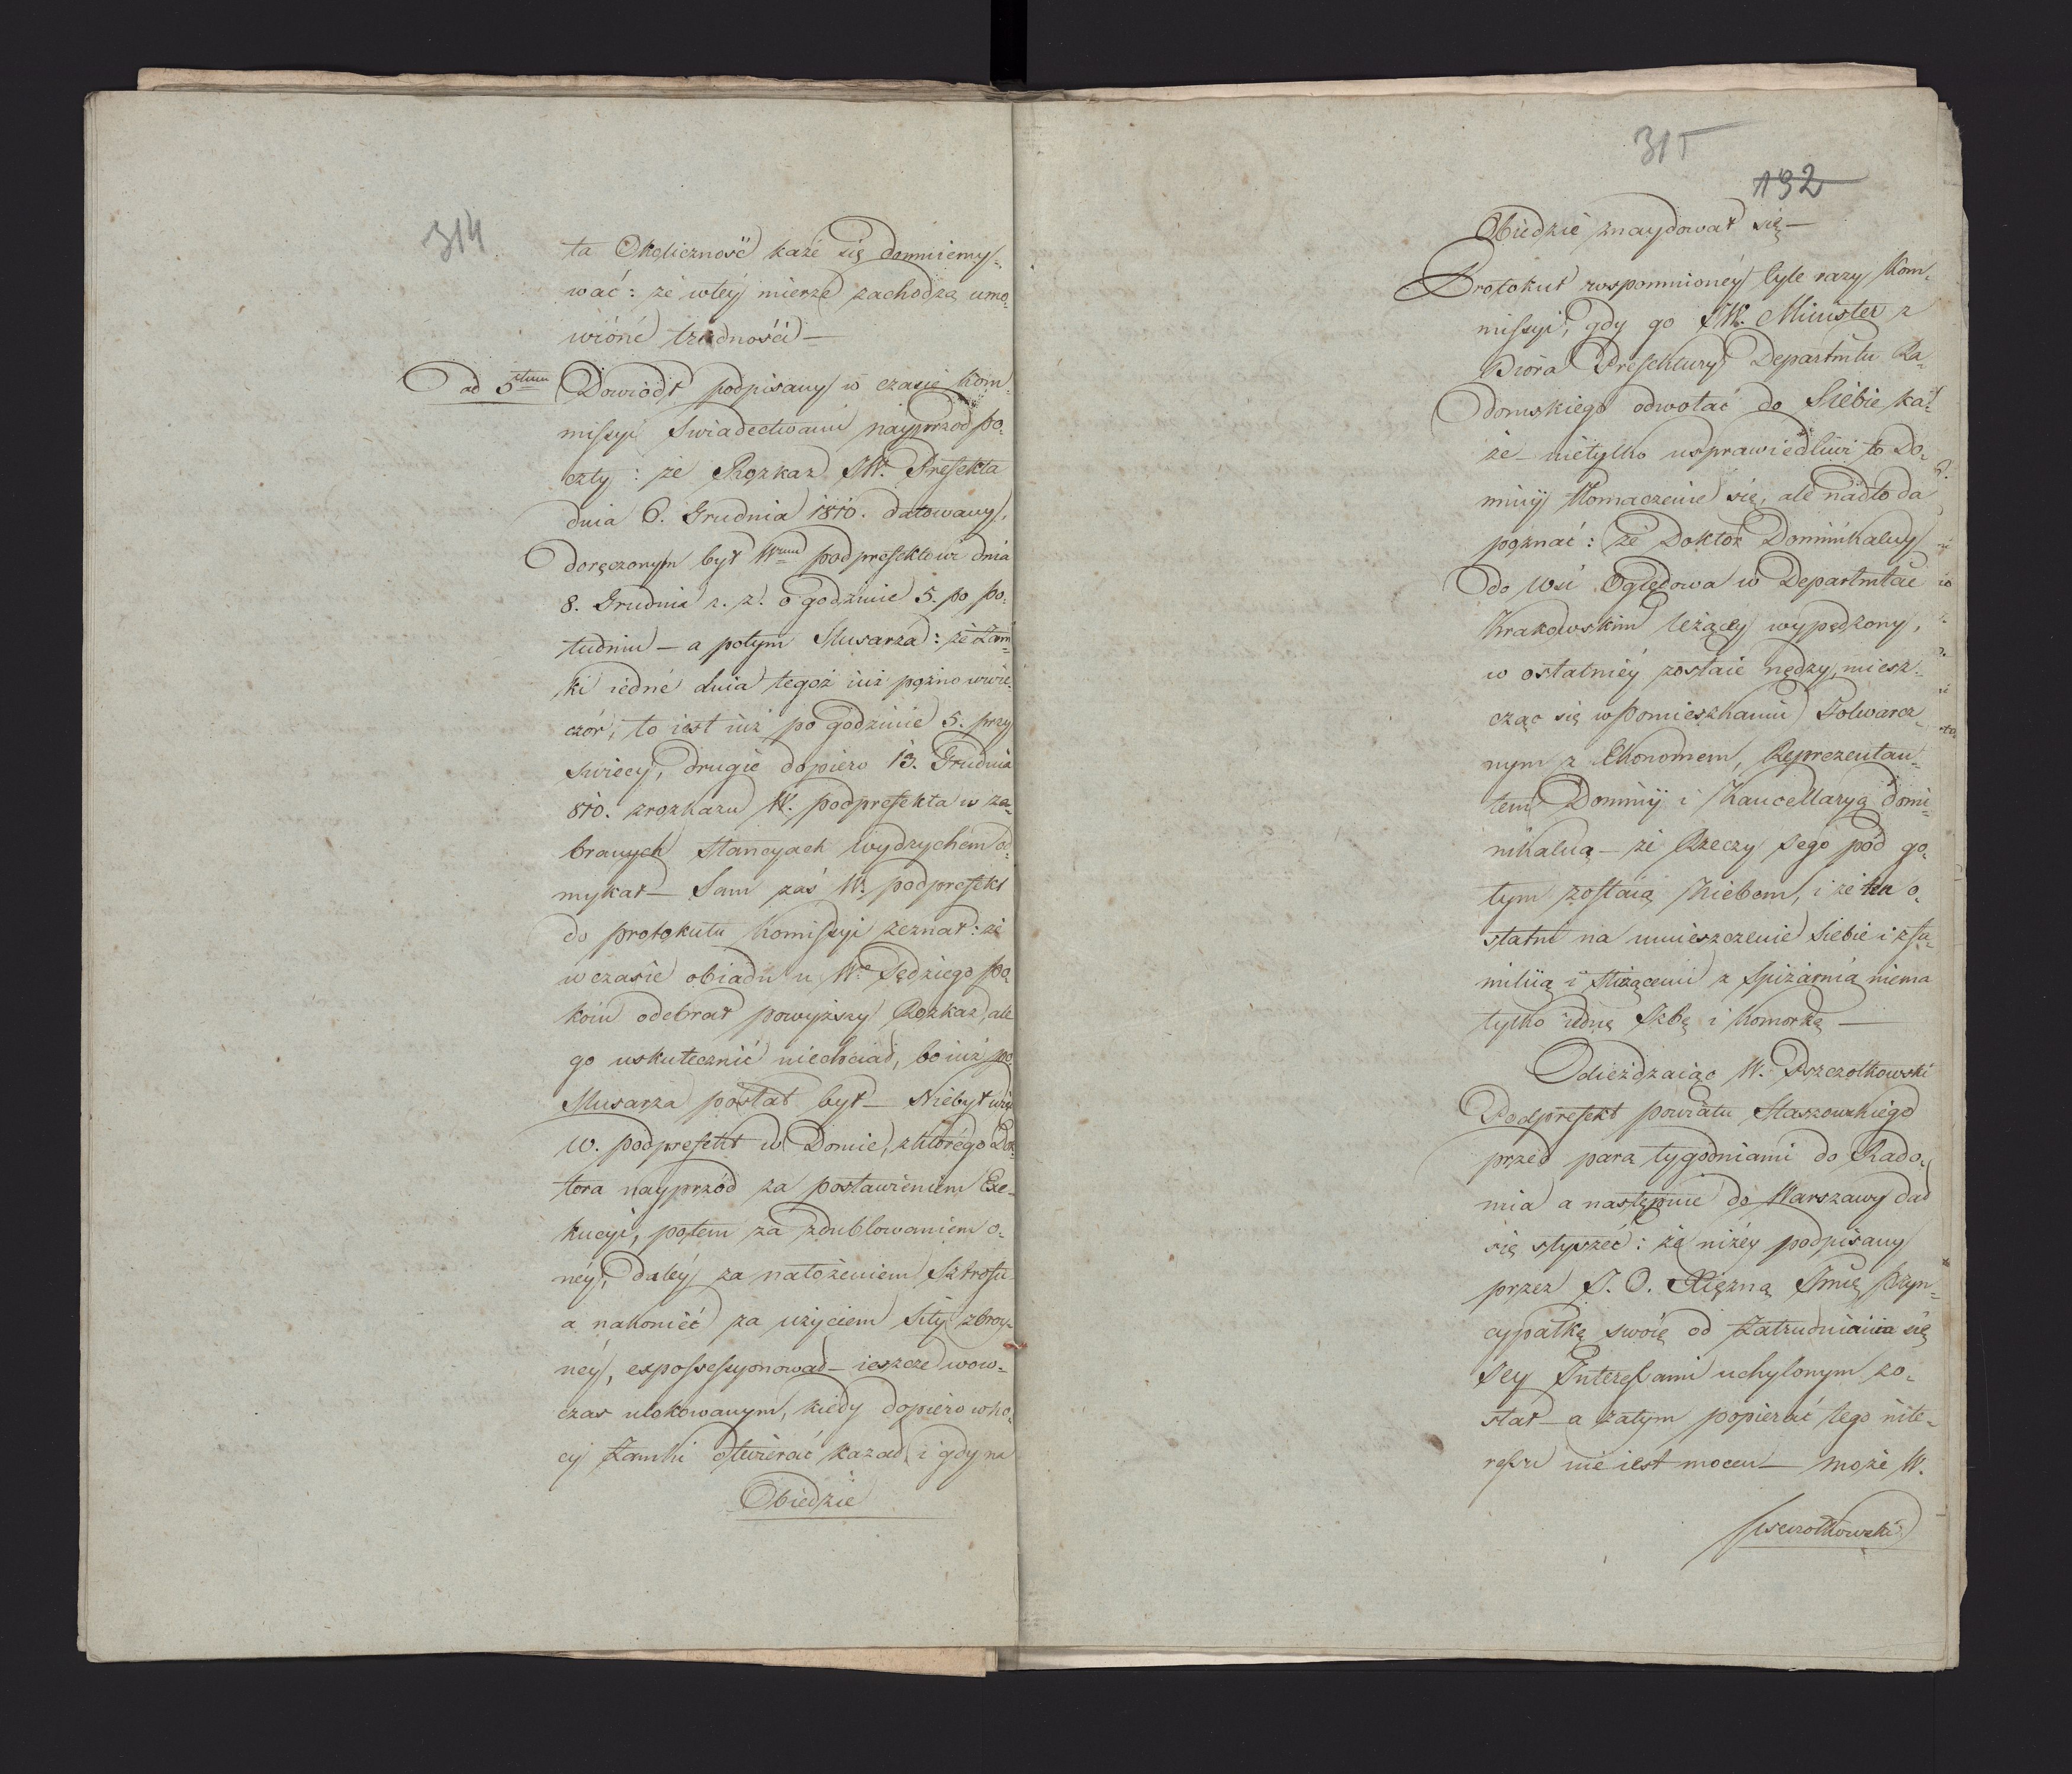 314
ta Okoliczność każe się domniemy-
wać: że wtéy mierze zachodzą umó-
wióné trudnośći —
ad 5tum Dowiódł podpisany w czasie Kom-
missyi Swiadectwami nayprzod po-
czty: że Rozkaz JW. Prefekta
dnia 6. Grudnia 1810. datowany,
doręczonym był Wmu podprefektowi dnia
8. Grudnia r. z. o godzinie 5. po po-
łudniu — a potym Slusarza: że Zam-
ki iedné dnia tegoż iuż pożno wwie-
czór, to iest iuż po godzinie 5. przy
swiecy, drugie dopiero 13. Grudnia
810. zrozkazu W. podprefekta w za-
branych Stancyach wydrychem od-
mykał — Sam zaś W. podprefekt
do protokułu Komissyi zeznał: że
w czasie obiadu u Wo Sędziego po-
koiu odebrał powyższy Rozkaz, ale
go uskutecznić niechciał, bo iuż po
Slusarza posłał był — Niebył więc
W. podprefekt w Domie, zktórego Dok-
tora nayprzód za postawieniem Exe-
kucyi, potem za zdublowaniem o-
néy, daléy za nałożeniem Sztrofu
a nakoniéc za użyciem Siły zbroy-
néy, expossessyonował — ieszcze wow-
czas ulokowanym, kiedy dopiero w no-
cy Zamki otwierać kazał, i gdy na
Obiedzie
315
192
Obiedzie znaydował się —
Protokuł wspomnionéy tyle razy Kom-
missyi, gdy go JW. Minister z
Bióra Prefektury Departmtu Ra-
domskiego odwołać do Siebie ka-
że — nietylko usprawiedliwi to Do-
minij tłomaczenie się, ale nadto da
poznać: że Doktor Dominikalny
do Wsi Oględowa w Departmtcie
Krakowskim leżącey wypędzony,
w ostatniéy zostaie nędzy, miesz-
cząc się wPomieszkaniu Folwarcz-
nym z Ekonomem, Reprezentan-
tem Dominij i Kancellaryą domi-
nikalną — że Rzeczy Jego pod go-
łym zostaią Niebem, i że ten o-
statni na umieszczenie Siebie i z fa-
miliią i służącemi z Spiżarnią niema
tylko iedną Izbę i Komorkę —
Odieżdzaiąc W. Pszczołkowski
Podprefekt powiatu Staszowskiego
przed parą tygodniami do Rado-
mia a następnie do Warszawy dał
się słyszeć: że niżéy podpisany
przez J. O. Xiężną Jmię Pryn-
cypałkę swoię od Zatrudniania się
Jey Interesami uchylonym zo-
stał — a zatym popierać tego inte-
ressu nie iest mocen — może W.
Pszczołkowski